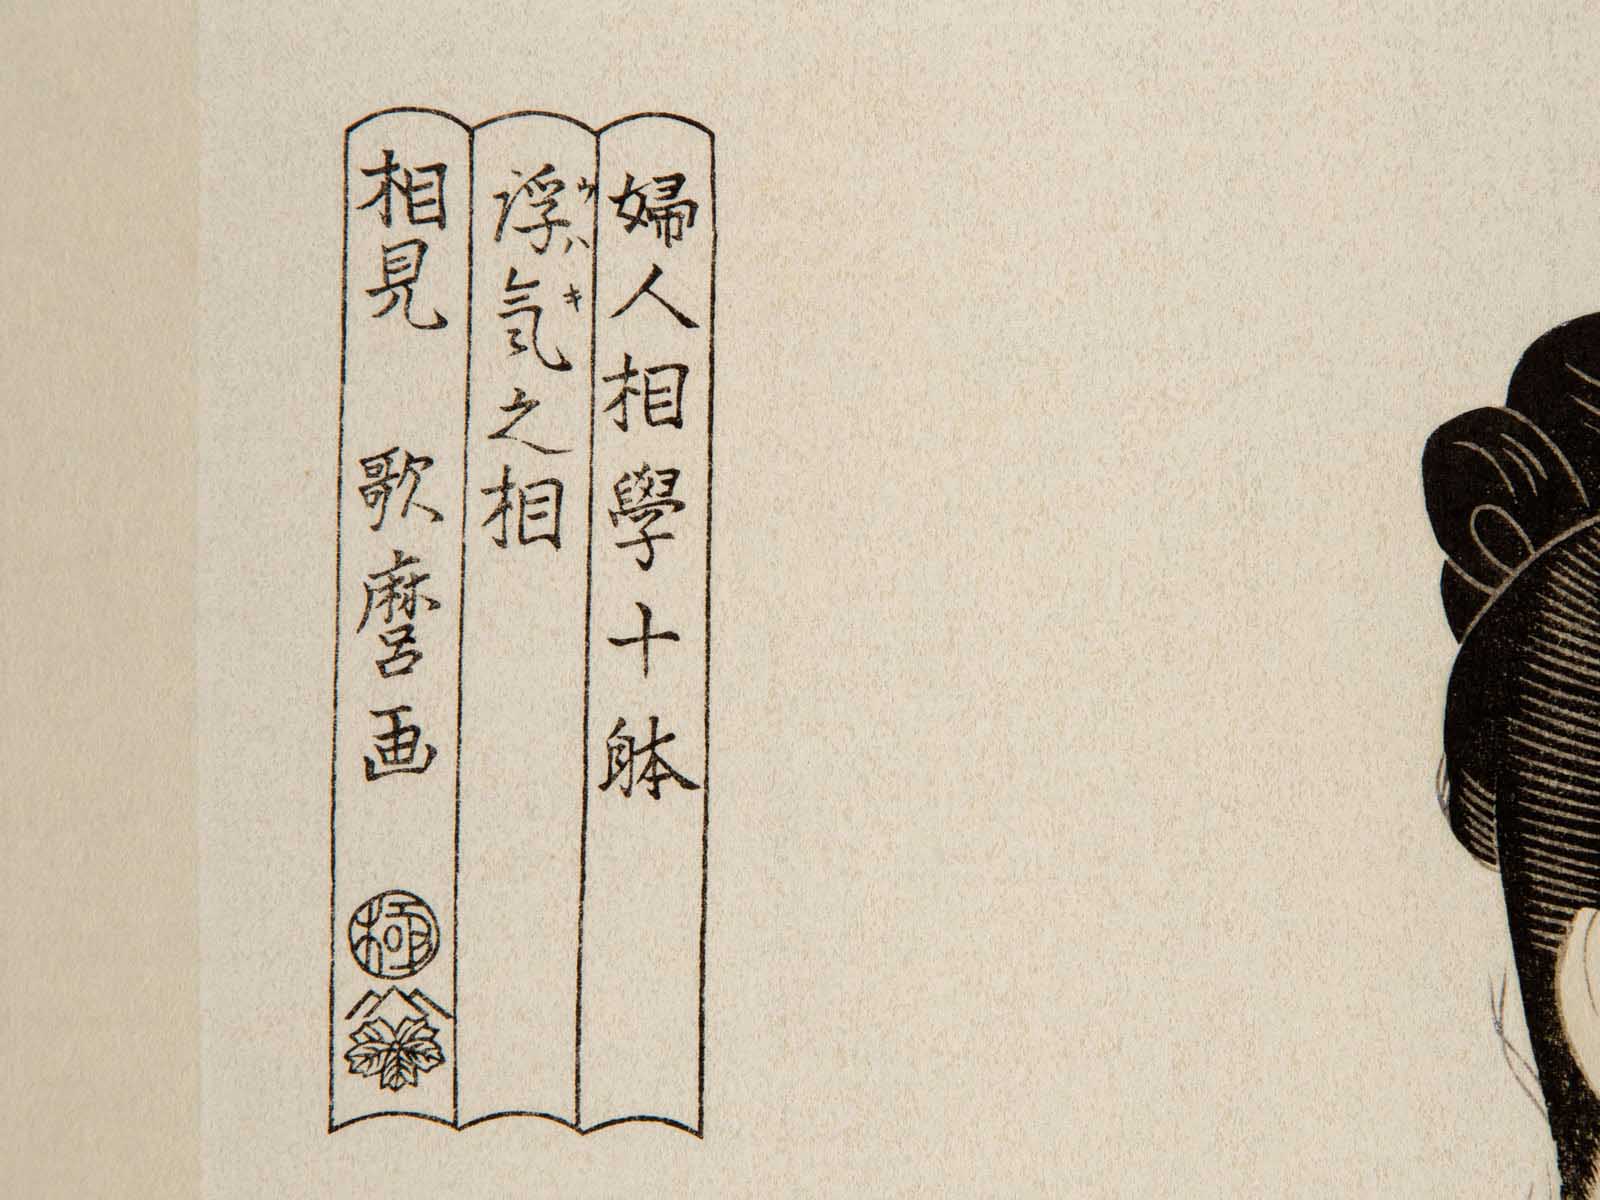 婦人相學十躰
浮氣之相
ウハキ
相見 歌麿画
極